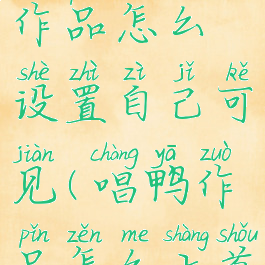 作品怎么
shè zhì zì jǐ kě
设置自己可
jiàn chàng yā zuò
见(唱鸭作
pǐn zěn me shàng shǒu
品怎么上首